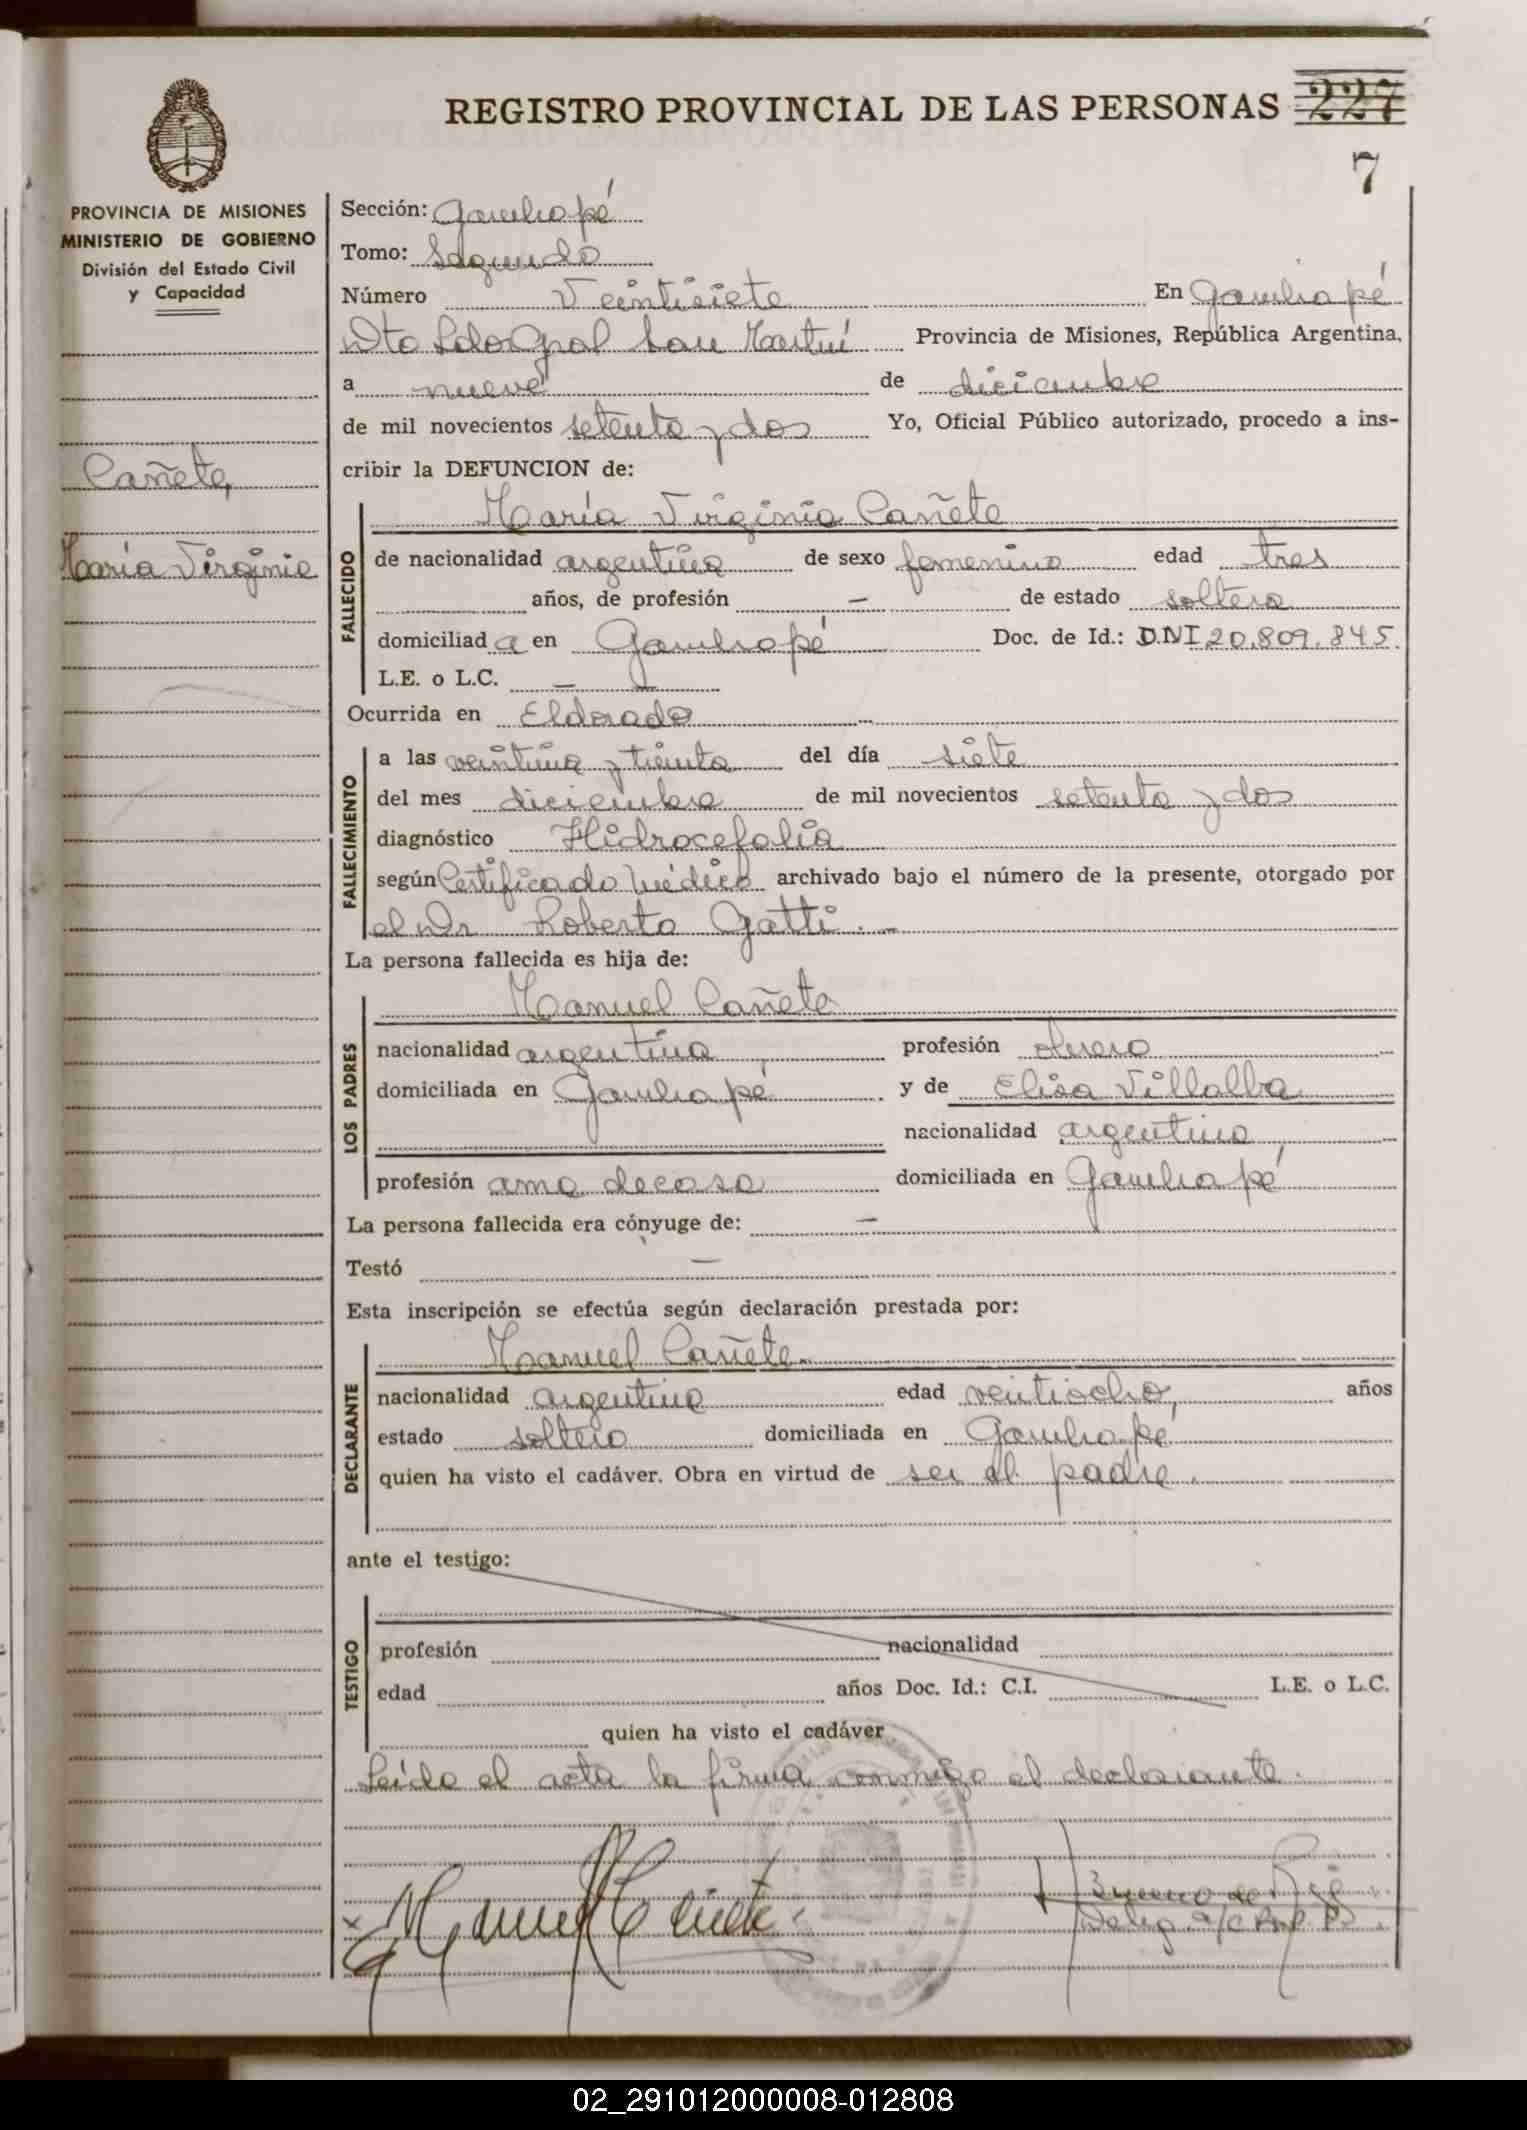 REGISTRO PROVINCIAL DE LAS PERSONAS 227
7
PROVINCIA DE MISIONES
MINISTERIO DE GOBIERNO
División del Estado Civil
y Capacidad
Cañete,
María Virginia
Sección: Garuhapé
Tomo: Segundo
Número Veintisiete En Garuhapé
Dto Ldor Gral San Martín Provincia de Misiones, República Argentina,
a nueve de diciembre
de mil novecientos setenta y dos Yo, Oficial Público autorizado, procedo a ins-
cribir la DEFUNCION de:
María Virginia Cañete
FALLECIDO
de nacionalidad argentina de sexo femenino edad tres
años, de profesión — de estado soltera
domiciliad a en Garuhapé Doc. de Id.: DNI 20.809.845.
L.E. o L.C. — —
Ocurrida en Eldorado
FALLECIMIENTO
a las veintiuna y treinta del día siete
del mes diciembre de mil novecientos setenta y dos
diagnóstico Hidrocefalia
según Certificado Médico archivado bajo el número de la presente, otorgado por
el Dr Roberto Gatti. —
La persona fallecida es hija de:
Manuel Cañete
LOS PADRES
nacionalidad argentina profesión obrero
domiciliada en Garuhapé y de Elisa Villalba
nacionalidad argentina
profesión ama de casa domiciliada en Garuhapé
La persona fallecida era cónyuge de: —
Testó —
Esta inscripción se efectúa según declaración prestada por:
Manuel Cañete.
DECLARANTE
nacionalidad argentina edad veintiocho, años
estado soltero domiciliada en Garuhapé
quien ha visto el cadáver. Obra en virtud de ser el padre.
ante el testigo:
TESTIGO
profesión nacionalidad
edad años Doc. Id.: C.I. L.E. o L.C.
quien ha visto el cadáver
Leída el acta la firma conmigo el declarante.
x Manuel Cañete
02_291012000008-012808